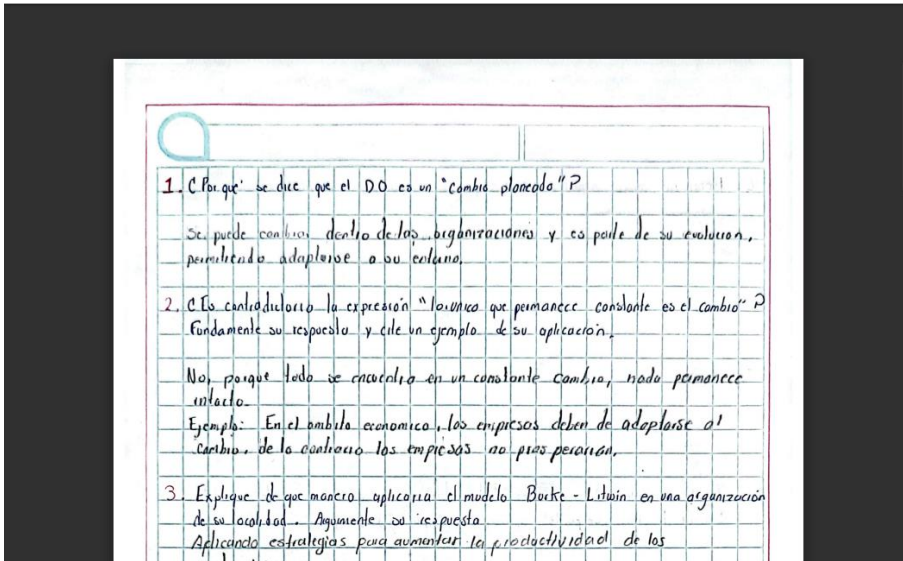 1. ¿Por qué se dice que el DO es un "cambio planeado"?
Se puede cambiar dentro de las organizaciones y es parte de su evolucion,
permitiendo adaptarse a su entorno.
2. ¿Es contradictorio la expresión "lo único que permanece constante es el cambio"?
Fundamente su respuesta y cite un ejemplo de su aplicación.
No, porque todo se encuentra en un constante cambio, nada permanece
intacto.
Ejemplo: En el ambito economico, las empresas deben de adaptarse al
cambio, de lo contrario las empresas no prosperarían.
3. Explique de que manera aplicaria el modelo Burke - Litwin en una organización
de su localidad. Argumente su respuesta
Aplicando estrategias para aumentar la productividad de los